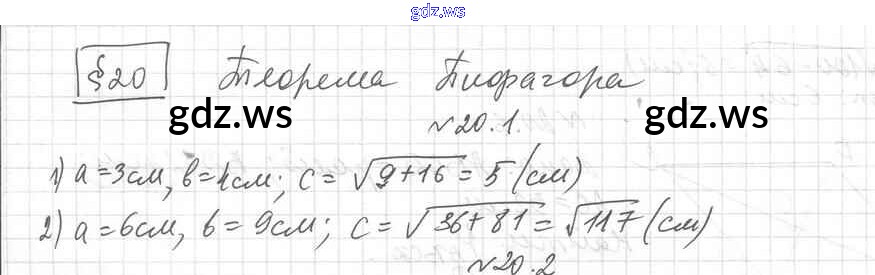 gdz.ws
§20 Теорема Пифагора
gdz.ws gdz.ws
№20.1.
1) a=3см, b=4см; c=√9+16=5 (см)
2) a=6см, b=9см; c=√36+81=√117 (см)
№20.2